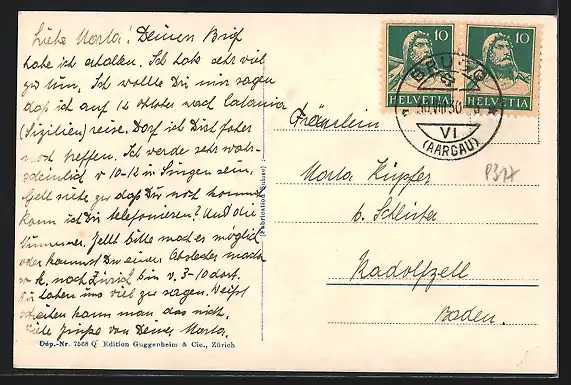 Liebe Marta! Deinen Brief
habe ich erhalten. Ich habe sehr viel
zu tun. Ich wollte Dir nur sagen
daß ich auf 12 Oktober nach Catania
(Sizilien) reise. Darf ich Dich
noch treffen. Ich werde sehr wahr-
scheinlich v 10-12 in Singen sein.
zu daß Du noch kommst
kann ich Dir telefonieren? Und die
Nummer. bitte mach es möglich
oder kommst Du einen
nach Zürich bin v. 3-10 dort.
Wir haben uns viel zu sagen. Weißt
schreiben kann man das nicht.
Viele Grüße von Deiner Marta.
Dép.-Nr. 7568 Q Edition Guggenheim & Cie., Zürich
(Fabrication Suisse)
10
10
HELVETIA
HELVETIA
BRUGG
VI
(AARGAU)
P317
Fräulein
Marta Küpfer
b. Schlirter
Radolfzell
Baden.